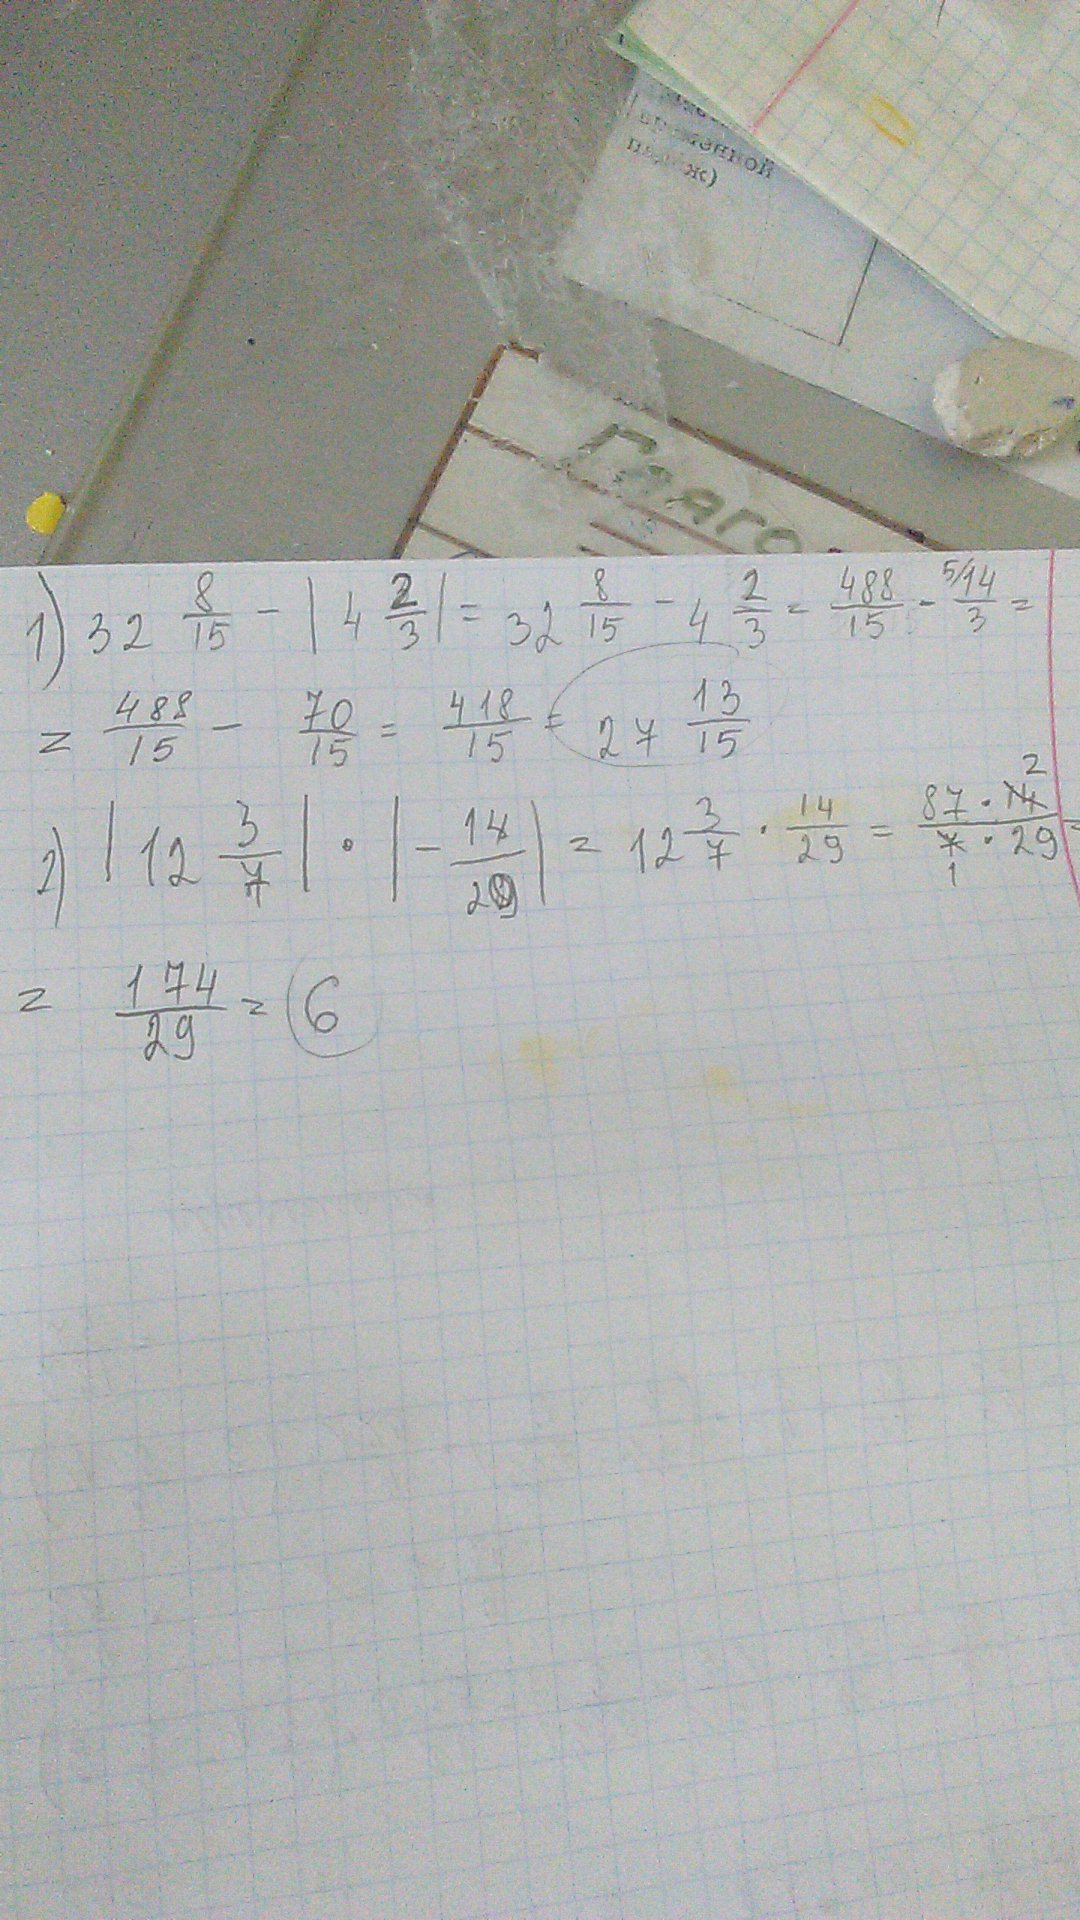 ж)
Глаго
1) 32 8/15 - |4 2/3| = 32 8/15 - 4 2/3 = 488/15 - 5/14/3 =
= 488/15 - 70/15 = 418/15 = 27 13/15
2) |12 3/7| · |-14/29| = 12 3/7 · 14/29 = 87 · 14 2/7 1 · 29 =
= 174/29 = 6